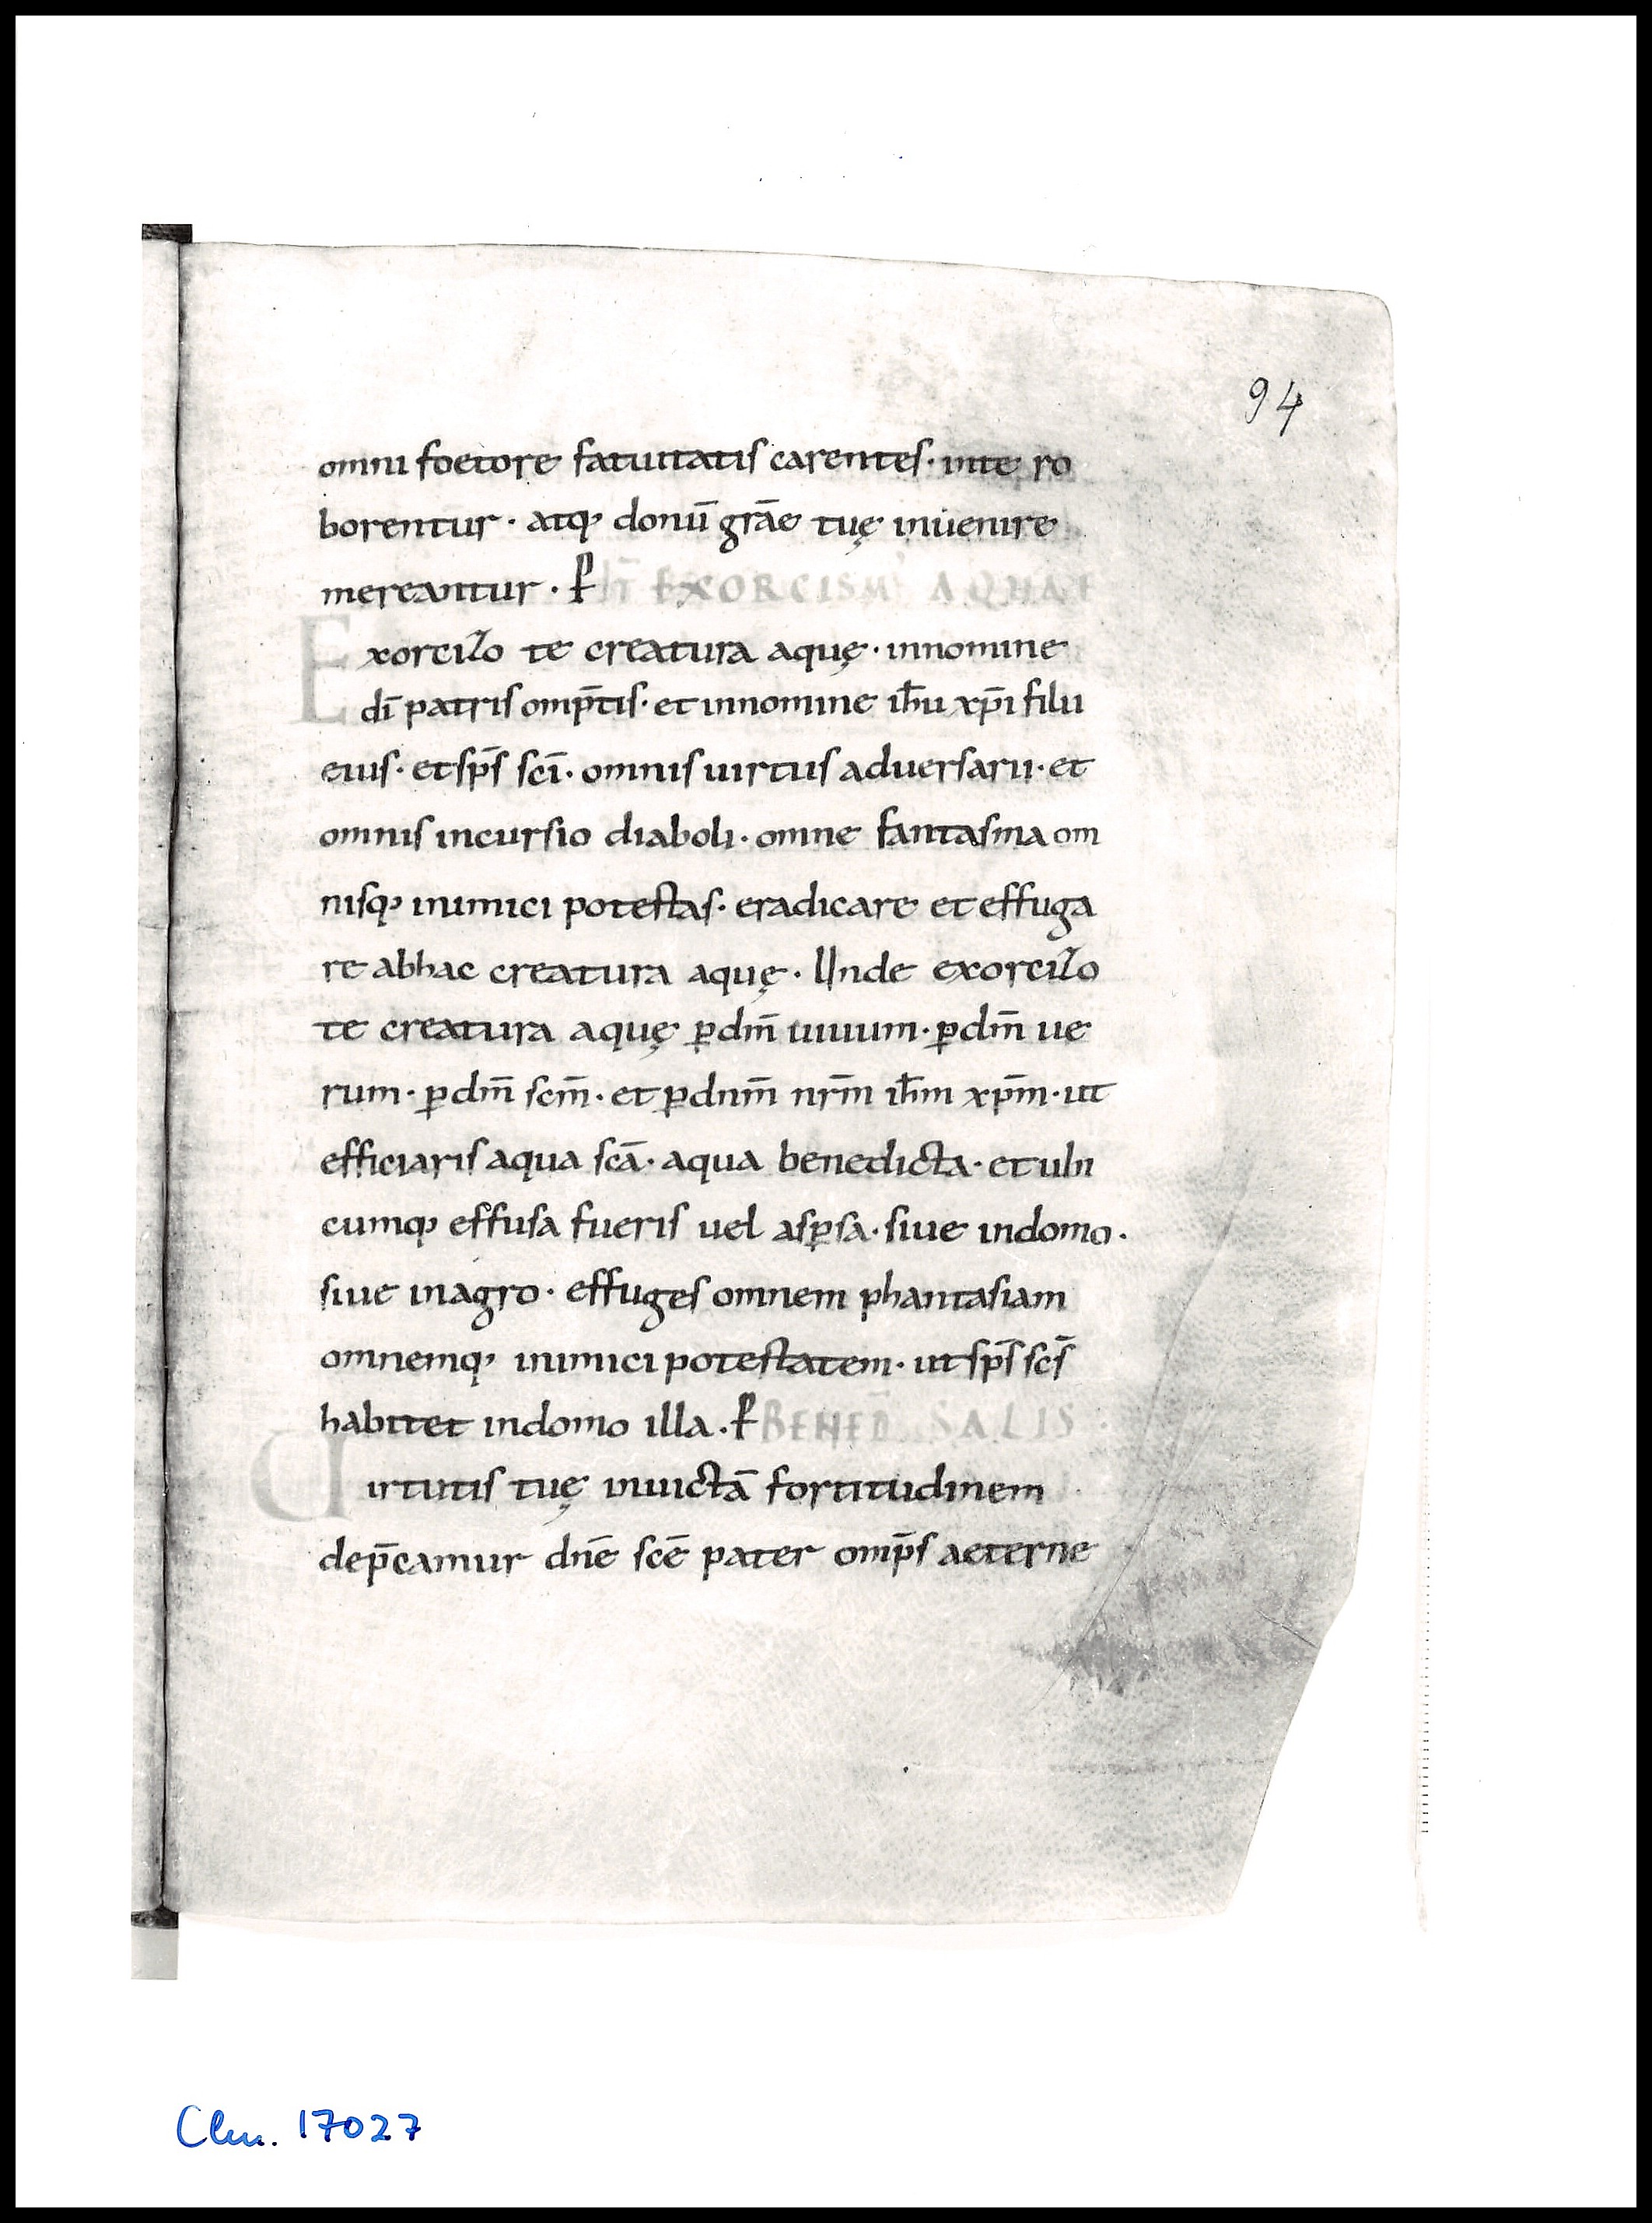 94
omni foetore fatuitatis carentes · inte ro
borentur · atq; donū grāe tuę inuenire
mereantur · P EXORCISM' AQUAE
Exorcizo te creatura aquę · innomine
dī patris omp̄tis · et innomine ih̄u xp̄i filii
eius · et sp̄s sc̄i · omnis uirtus aduersarii · et
omnis incursio diaboli · omne fantasma om
nisq; inimici potestas · eradicare et effuga
re abhac creatura aquę · Unde exorcizo
te creatura aquę ꝑ dm̄ uiuum · ꝑ dm̄ ue
rum · ꝑ dm̄ scm̄ · et ꝑ dnm̄ nrm̄ ih̄m xp̄m · ut
efficiaris aqua scā · aqua benedicta · et ubi
cumq; effusa fueris uel asꝑsa · siue indomo ·
siue inagro · effuges omnem phantasiam
omnemq; inimici potestatem · ut sp̄s sc̄s
habitet indomo illa · P BENED̄ SALIS
Uirtutis tuę inuictā fortitudinem
dep̄camur dn̄e sc̄e pater omp̄s aeterne
Clm. 17027